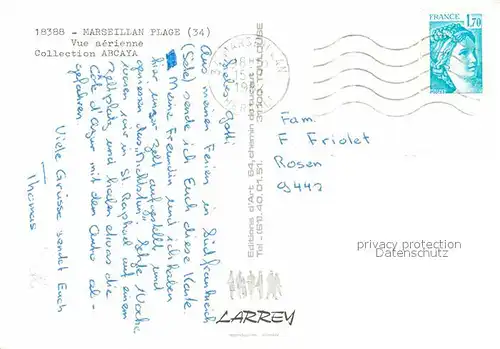 18388 - MARSEILLAN PLAGE (34)
Vue aérienne
Collection ARCAYA
Aus meinen Ferien in Südfrankreich
(Sète) sende ich Euch diese Karte.
Meine Freundin und ich haben
hier unser Zelt aufgestellt und
geniessen das "Nichtstun". Letzte Woche
waren wir in St. Raphael auf einem
Zeltplatz und sind die
Côte d'Azur mit dem Auto ab-
gefahren.
Viele Grüsse sendet Euch
Thomas
Editions d'Art 64, chemin
31300 TOULOUSE
Tel - (61) 40.01.51.
34 MARSEILLAN
FRANCE
1,70
Fam.
F Friolet
Rosen
9442
privacy protection
Datenschutz
LARREY